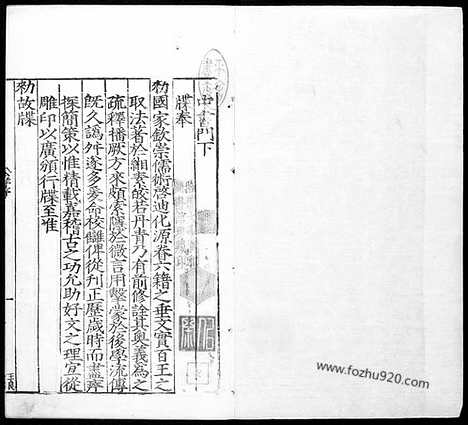 中書門下
牒奉
勑國家欽崇儒術啓迪化源眷六籍之垂文實百王之
取法著於緗素皎若丹青乃有前修詮其奧義為之
疏釋播厥方來頗索隱於微言用擊蒙於後學流傳
旣久譌舛遂多爰命校讎俾從刊正歷歲時而盡瘁
探簡策以惟精載嘉稽古之功允助好文之理宜從
雕印以廣頒行牒至準
勑故牒
www.fozhu920.com